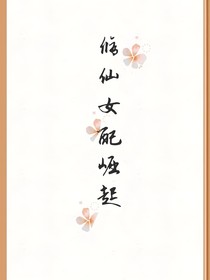 修仙女配崛起